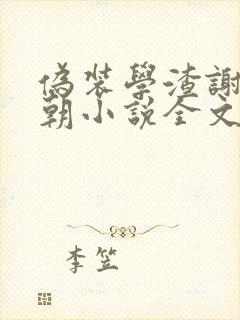 偽裝學渣謝
朝小說全文
李笠